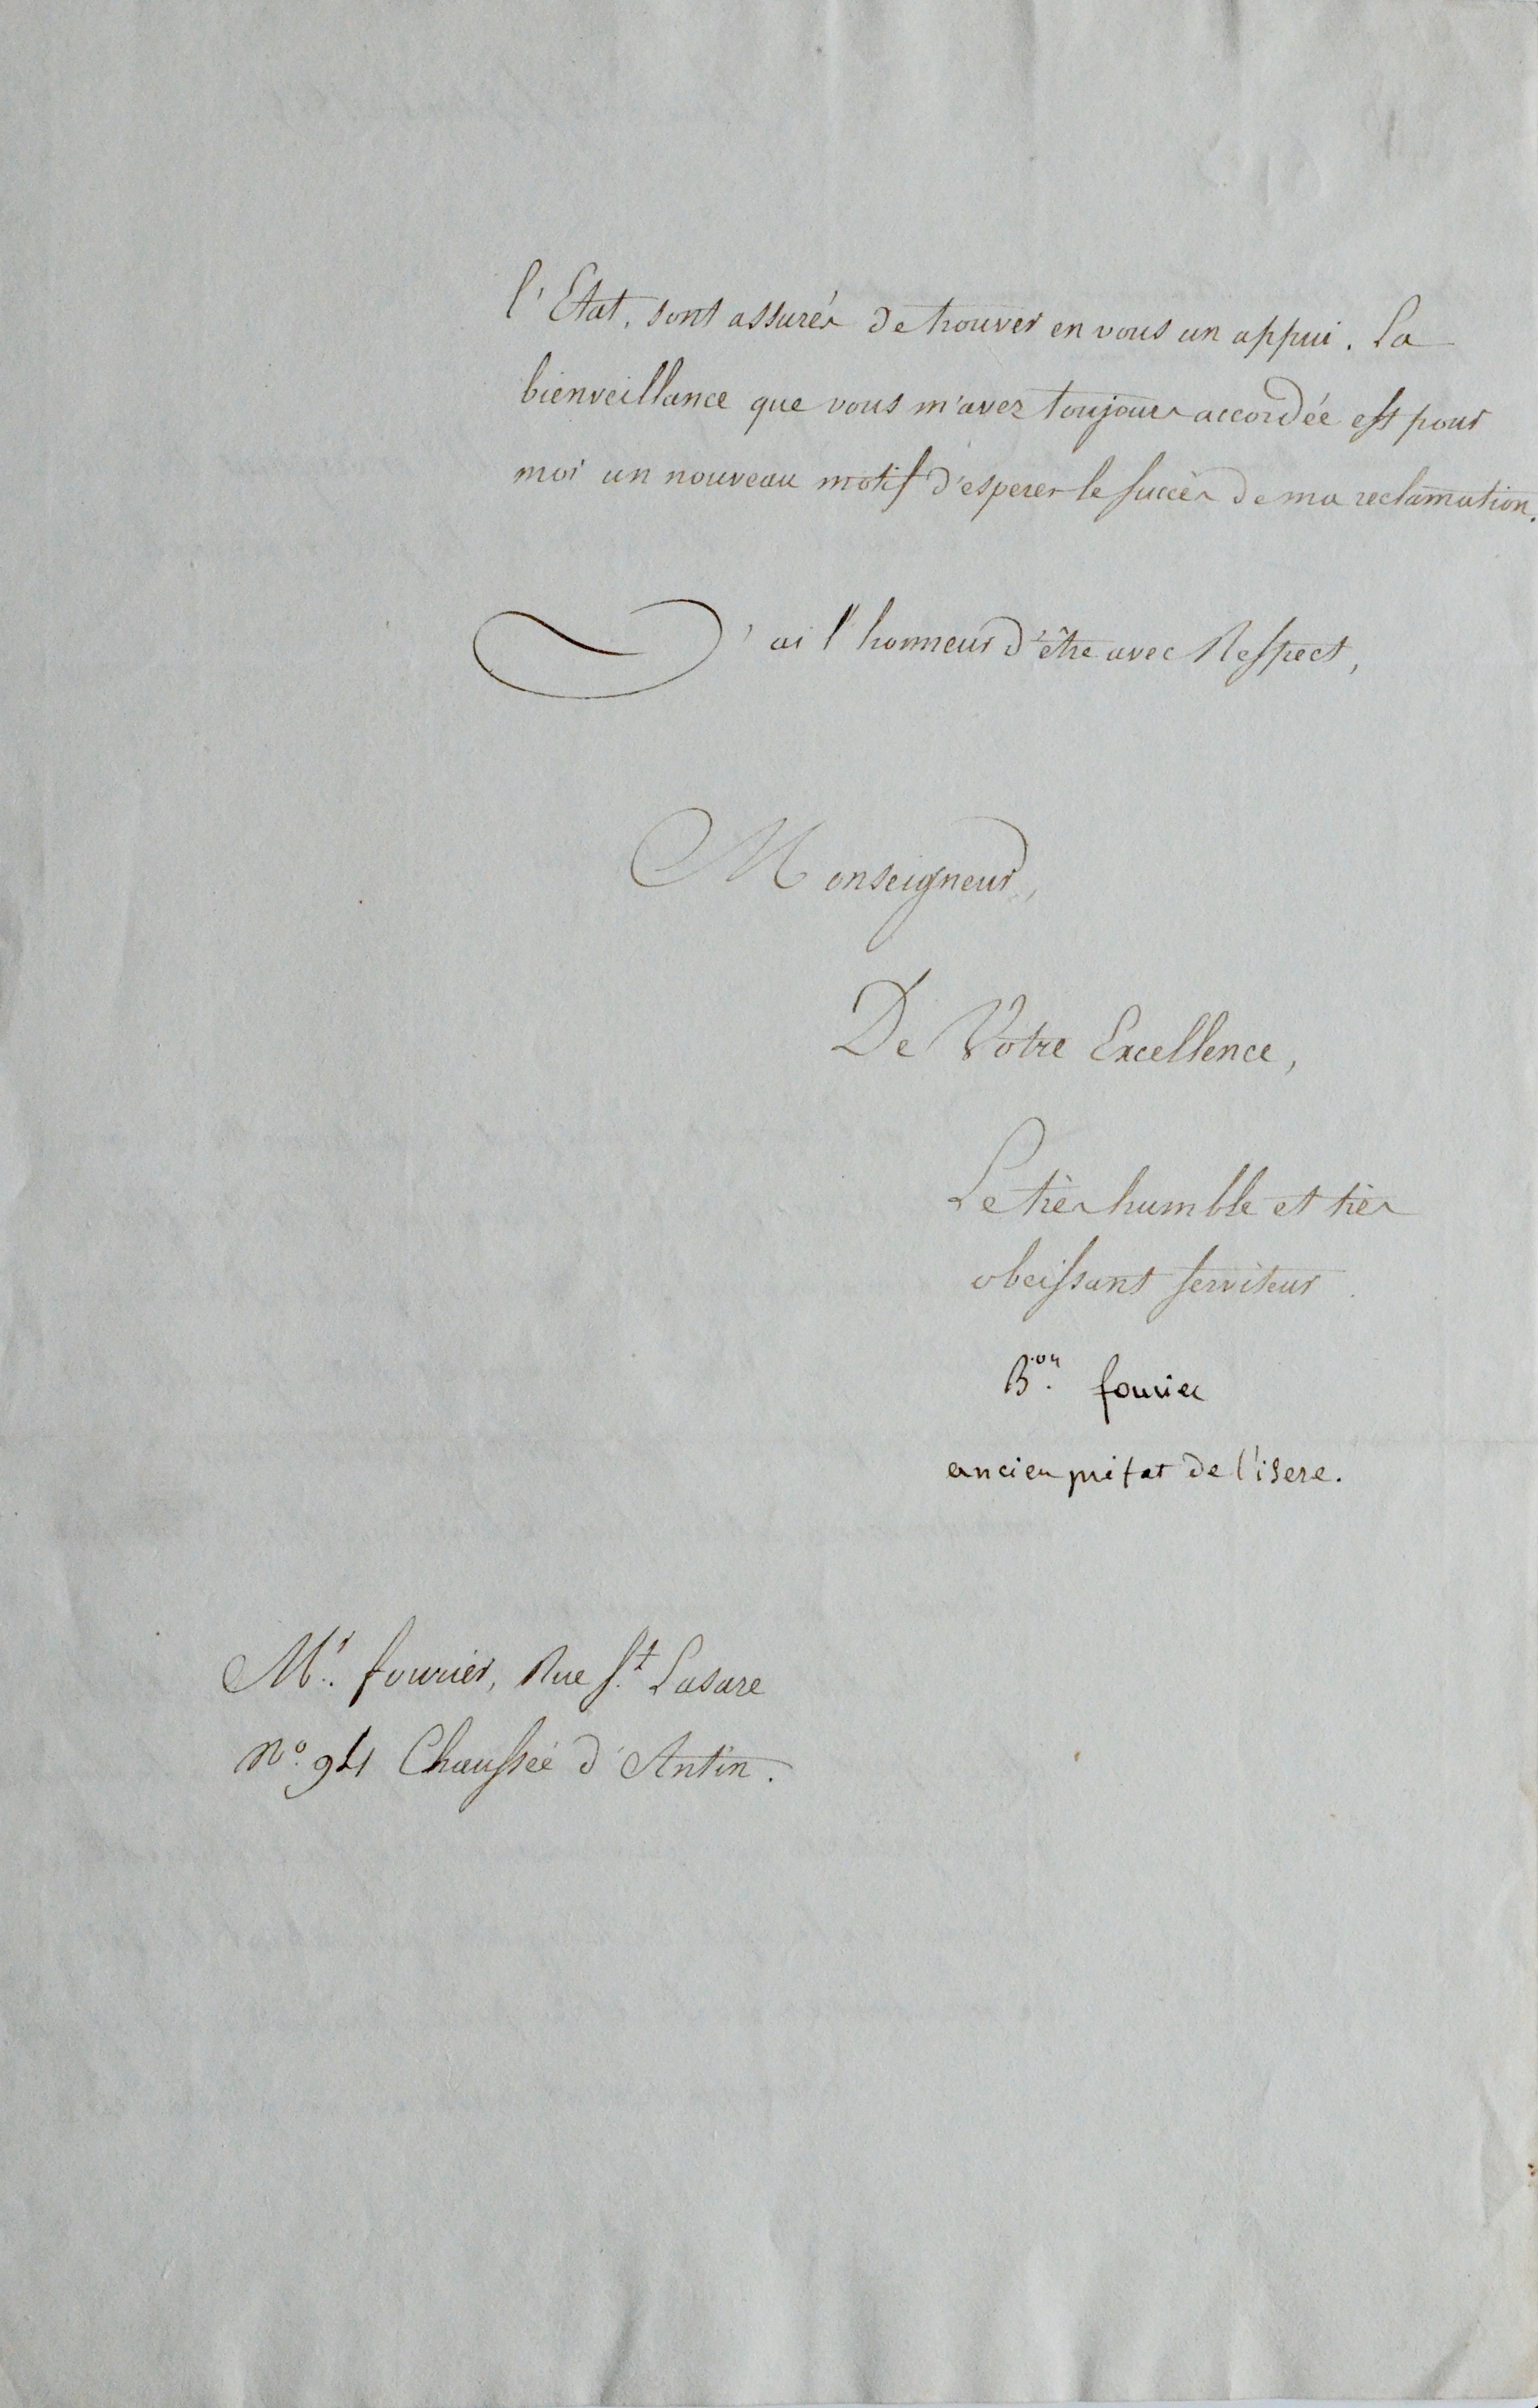 l'Etat, sont assurés de trouver en vous un appui. La
bienveillance que vous m'avez toujours accordée est pour
moi un nouveau motif d'esperer le succès de ma reclamation.
J'ai l'honneur d'être avec Respect,
Monseigneur,
De Votre Excellence,
Le très humble et très
obeissant serviteur.
B.on fourier
ancien préfet de l'isere.
M.r fourier, Rue S.t Lasare
N.o 94 Chaussée d'Antin.